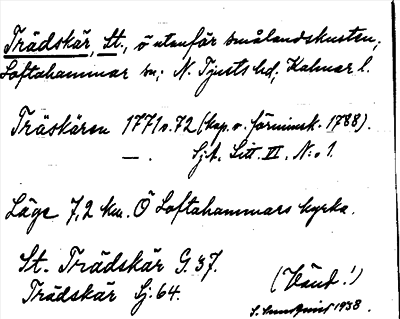 Trädskär, St., ö utanför smålandskusten;
Loftahammar sn; N. Tjusts hd; Kalmar l.
Träskären 1771 o. 72 (kop. o. förminsk. 1788).
— . Sjk. Litt. VI. N:o 1.
Läge 7,2 km. Ö Loftahammars kyrka.
St. Trädskär G. 37.
Trädskär Sj. 64.
(Vänd!)
S. 1938.